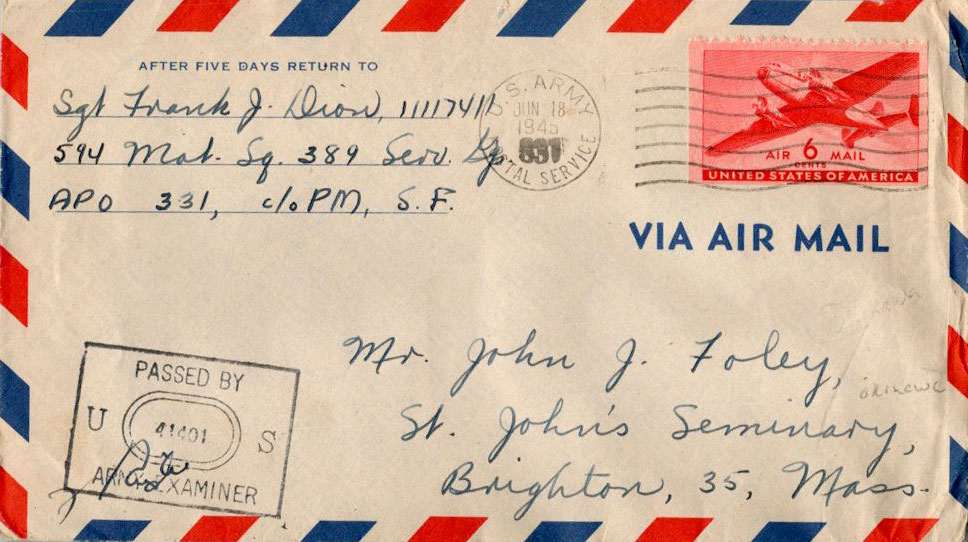 AFTER FIVE DAYS RETURN TO
Sgt Frank J. Dion, 11117411
594 Mat. Sq. 389 Serv. Gp
APO 331, c/o PM, S.F.
U.S. ARMY
JUN 18
1945
POSTAL SERVICE
AIR 6 MAIL
CENTS
UNITED STATES OF AMERICA
VIA AIR MAIL
Mr. John J. Foley,
St. John's Seminary,
Brighton, 35, Mass.
okinawa
PASSED BY
U 41401 S
ARMY EXAMINER